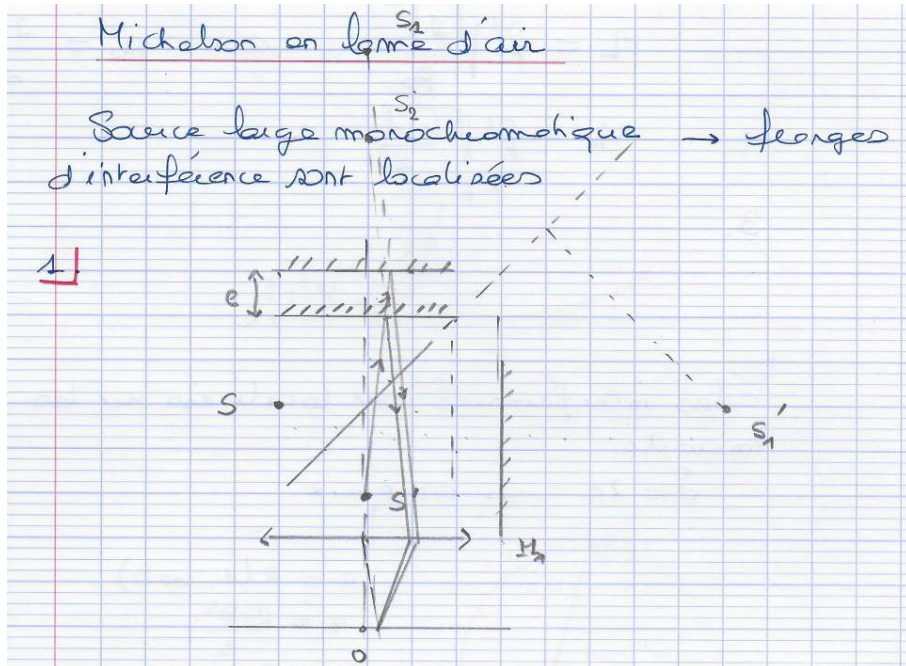 S1
Michelson en lame d'air
S2
Source large monochromatique → franges
d'interférence sont localisées
1
e
S
S1'
S'
M1
O